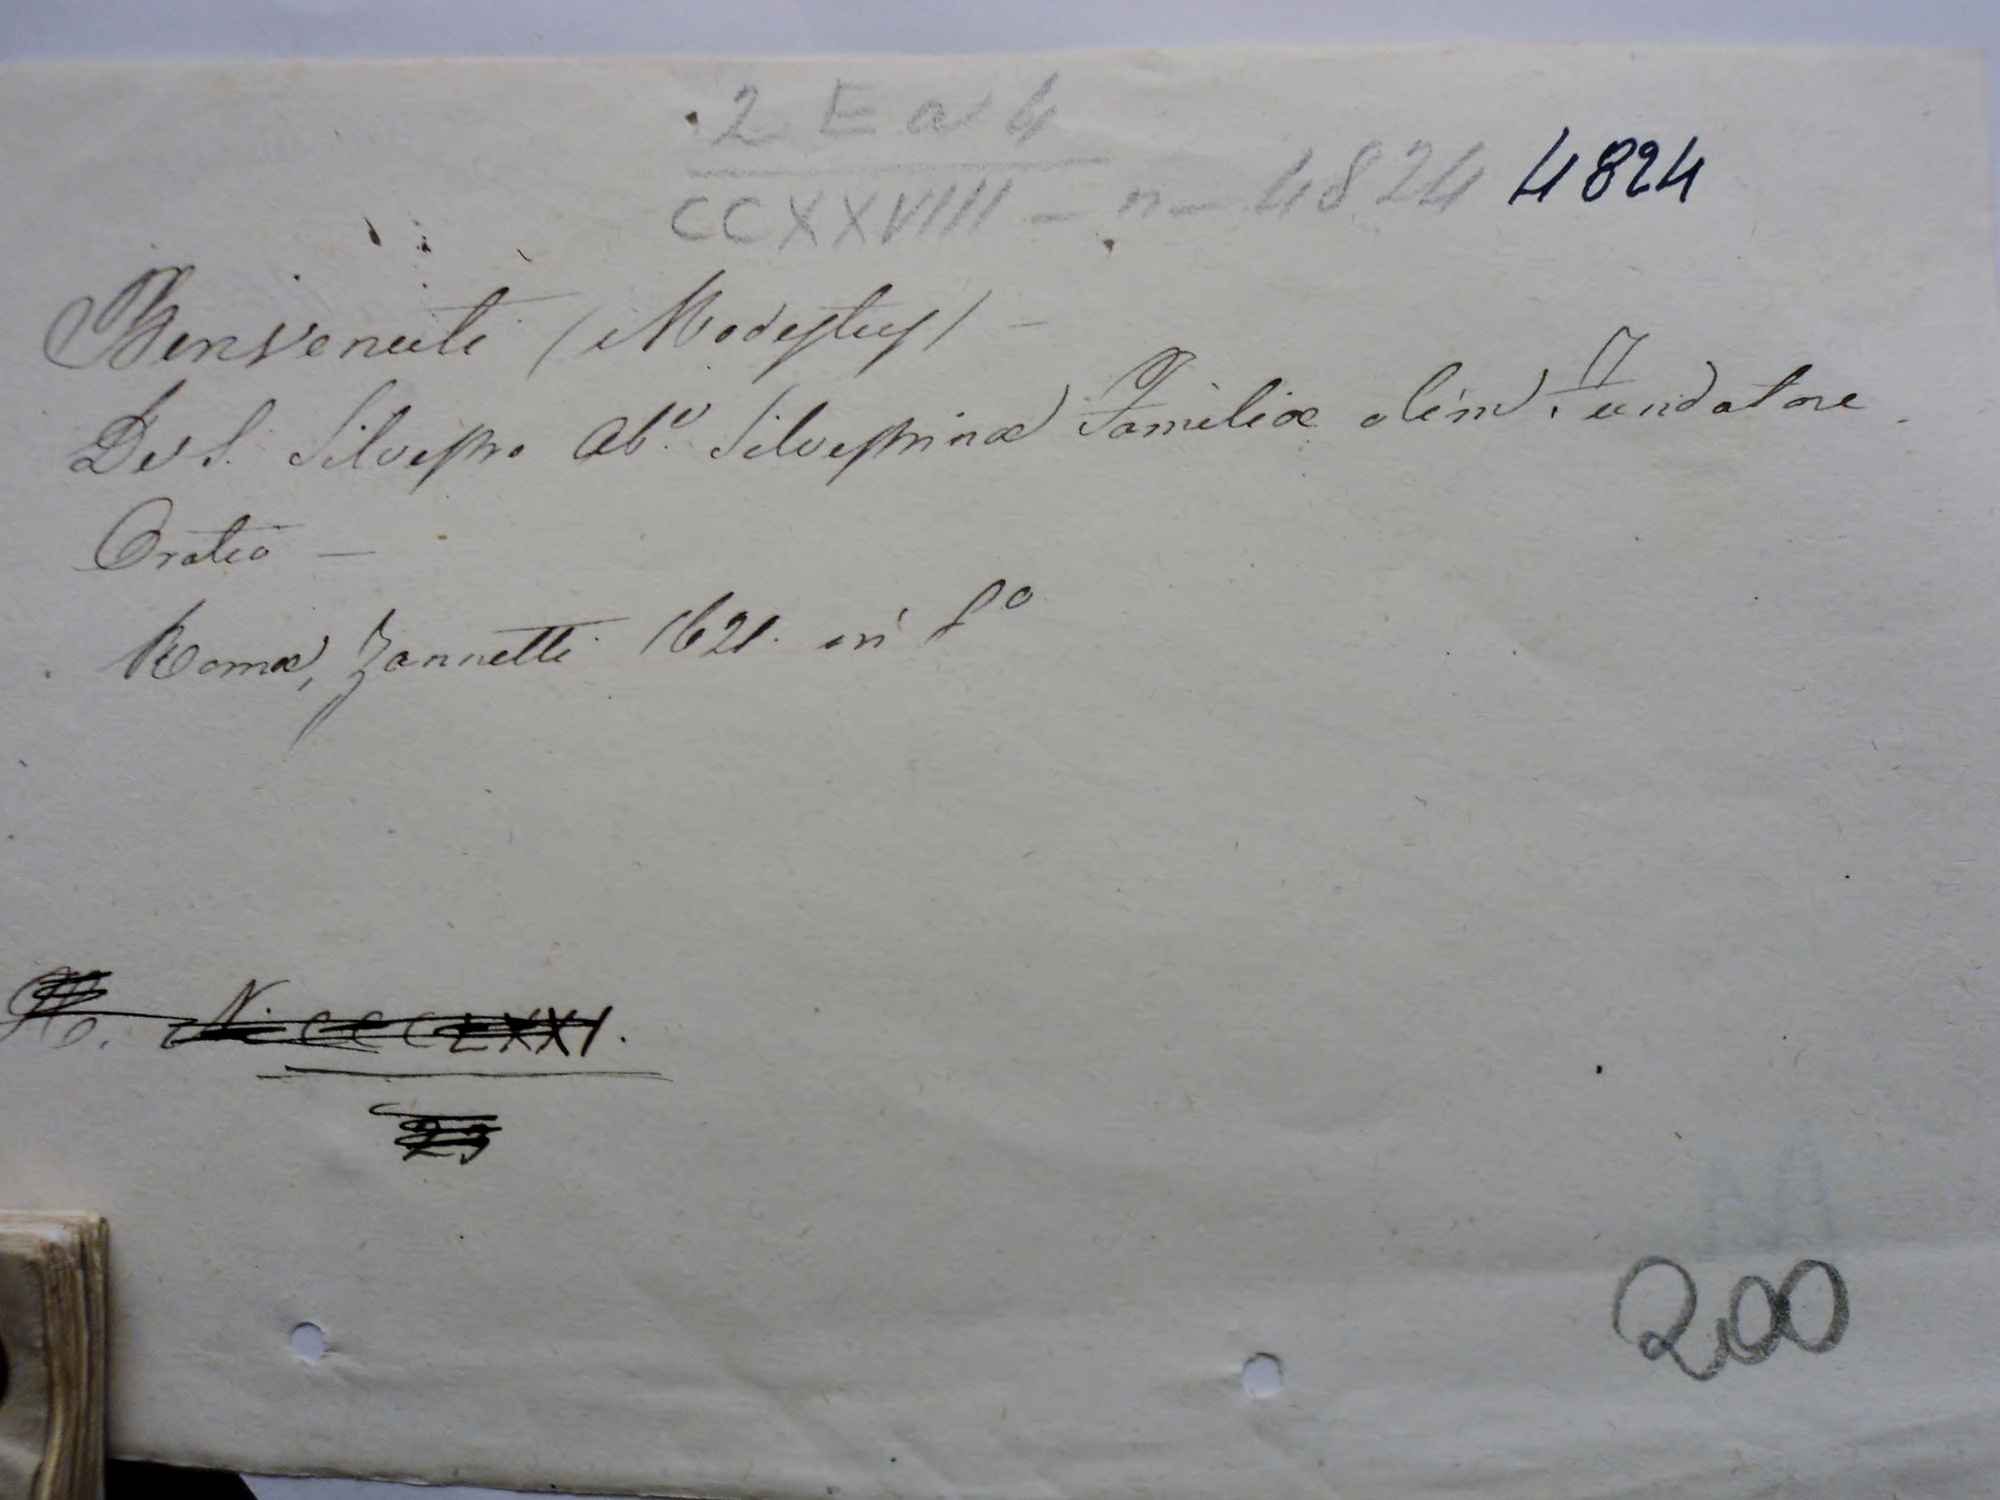 2 E a 4
CCXXVIIII - n - 4824 4824
Benvenuti (Modestus) -
De S. Silvestro Ab.e Silvestrinæ Familiæ olim Fundatore.
Oratio -
Romæ, Zannetti 1621. in f.o
N. CCCLXXI.
23
200